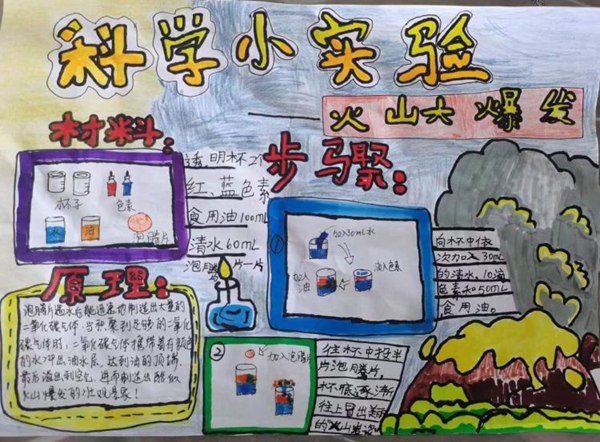 科学小实验
——火山大爆发
材料：
透明杯2个
红、蓝色素
食用油100mL
清水60mL
泡腾片一片
杯子
色素
水
油
泡腾片
步骤：
①
加入30mL水
加入色素
加入油
向杯中依
次加入30mL
的清水，10滴
色素和50mL
食用油。
②
加入泡腾片
往杯中投半
片泡腾片。
杯底逐渐
往上冒出
的火山
原理：
泡腾片遇水后能迅速地制造出大量的
二氧化碳气体，当积聚到足够的二氧化
碳气体时，二氧化碳气体推携着有颜色
的水冲出油水层，达到油的顶端，
最后溢出到空气，再而制造出酷似
火山爆发的壮观景象！